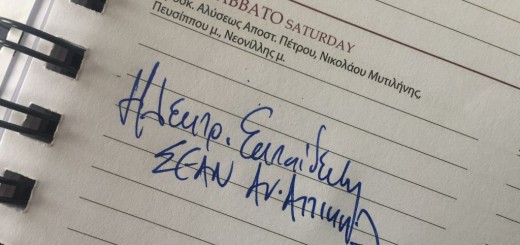 ΣΑΒΒΑΤΟ SATURDAY
Προσκ. Αλύσεως Αποστ. Πέτρου, Νικολάου Μυτιλήνης,
Πευσίππου μ., Νεονίλλης μ.
Ηλεκτρ. Εκπαίδευση
ΣΕΑΝ Αν. Αττικής